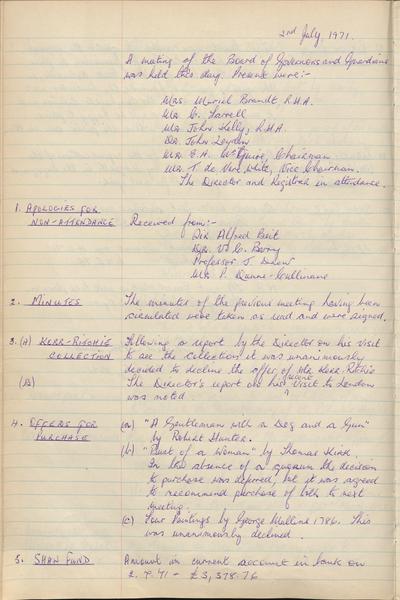 2nd July, 1971.
A meeting of the Board of Governors and Guardians
was held this day. Present were:-
Mrs. Muriel Brandt R.H.A.
Mr. C. Farrell
Mr. John Kelly, R.H.A.
Dr. John Leydon
Mr. E.A. McGuire, Chairman
Mr. T. de Vere White, Vice Chairman.
The Director and Registrar in attendance.
1. APOLOGIES FOR
NON-ATTENDANCE
Received from:-
Sir Alfred Beit
Dr. V. C. Barry
Professor J.
Mr. P. Dunne-Cullinane
2. MINUTES
The minutes of the previous meeting having been
circulated were taken as read and were signed.
3. (A) KERR-RITCHIE
COLLECTION
Following a report by the Director on his visit
to see the collection it was unanimously
decided to decline the offer of Mr. Kerr-Ritchie
(B)
The Director's report on his recent visit to London
was noted
4. OFFERS FOR
PURCHASE
(a) "A Gentleman with a Dog and a Gun"
by Robert Hunter.
(b) "Bust of a Woman" by Thomas Kirk.
In the absence of a quorum the decision
to purchase was deferred, but it was agreed
to recommend purchase of both to next
meeting.
(c) Four Paintings by George Mullins 1786. This
was unanimously declined.
5. SHAW FUND
Amount in current account in bank on
2. 7. 71 - £3,378.76